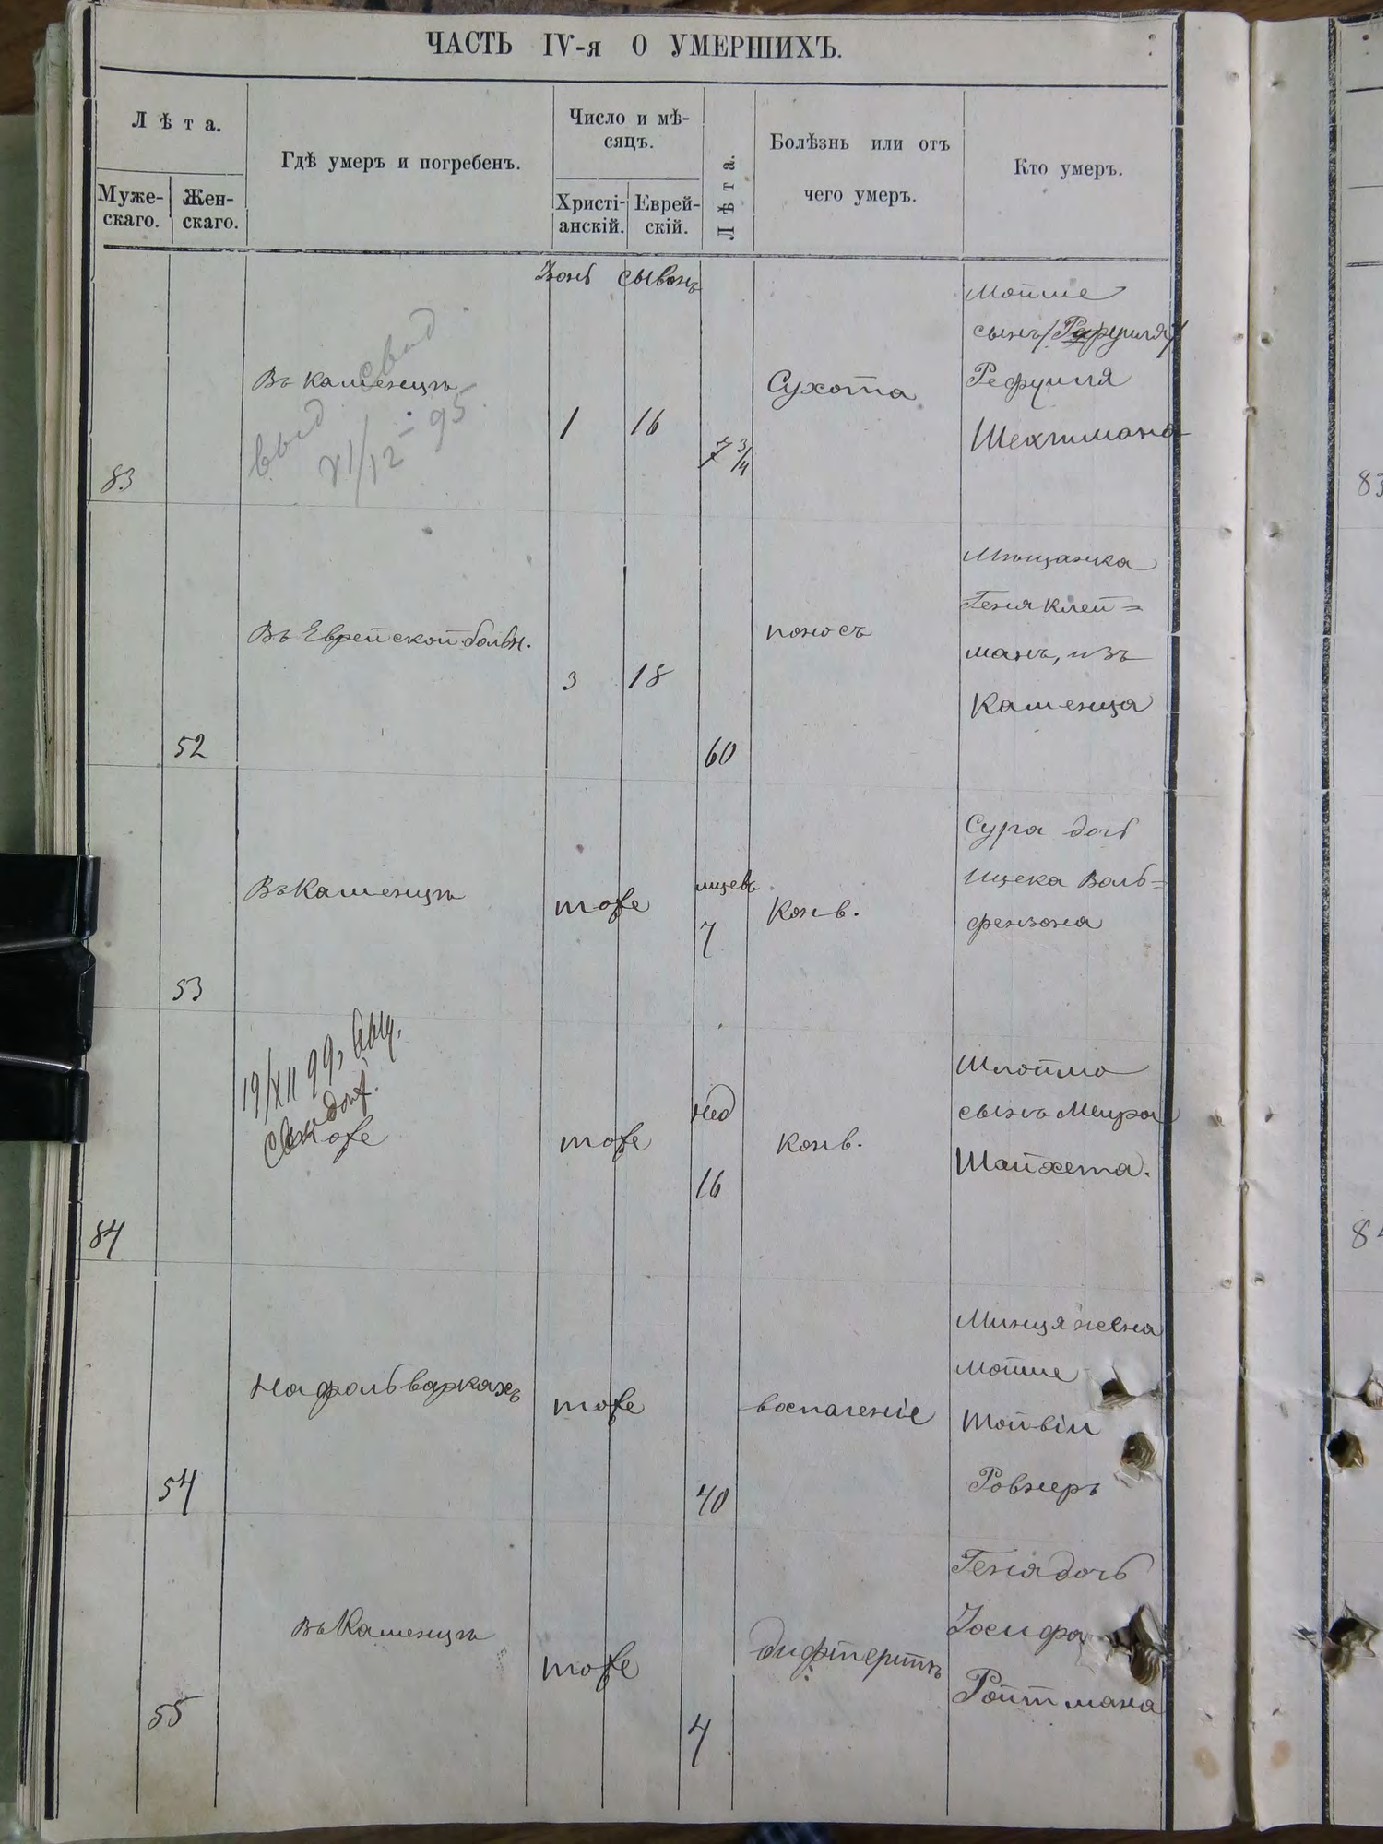 ЧАСТЬ IV-я О УМЕРШИХЪ.
Лѣта.
Муже-
скаго.
Жен-
скаго.
Гдѣ умеръ и погребенъ.
Число и мѣ-
сяцъ.
Христі-
анскій.
Еврей-
скій.
Лѣта.
Болѣзнь или отъ
чего умеръ.
Кто умеръ.
Іюнь сывонъ
83
Въ Каменцѣ
выд. свид
VI/12-95
1
16
7 3/4
Сухота
Мойше
сынъ
Рефуиля
Шехтмана
83
52
Въ Еврейской больн.
3
18
60
поносъ
Мѣщанка
Геня Клей=
манъ, изъ
Каменца
53
Въ Каменцѣ
тоже
мцевъ
7
Конв.
Сура дочь
Ицека Воль=
фензона
84
19/XII 99,
тоже
нед
16
Конв.
Шлоймо
сынъ Меира
Шайхета.
54
На фольваркахъ
тоже
40
воспаленіе
Минця жена
Мойше
Шойвіл
Ровнеръ
55
въ Каменцѣ
тоже
4
дифтеритъ
Геня дочь
Іосифа
Ройтмана